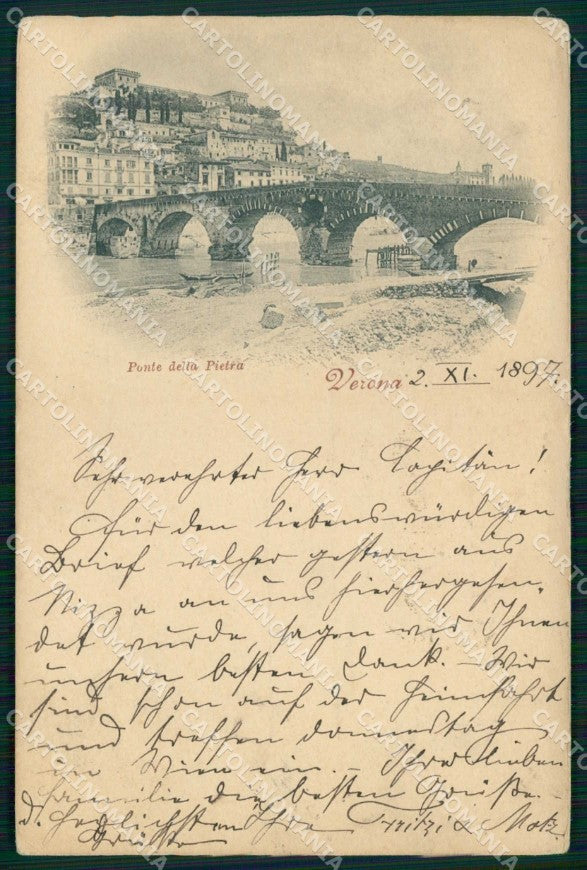 Ponte della Pietra
Verona 2. XI. 1897.
Sehr verehrter Herr Capitän!
Für den liebenswürdigen
Brief welcher gestern aus
Nizza an uns hierhergesen-
det wurde, sagen wir Ihnen
unsern besten Dank. – Wir
sind schon auf der Heimfahrt
und treffen donnerstag
in Wien ein. – Ihrer lieben
Familie die besten Grüße. –
d. herzlichsten Ihre Fritzi &
Grüße
CARTOLINOMANIA